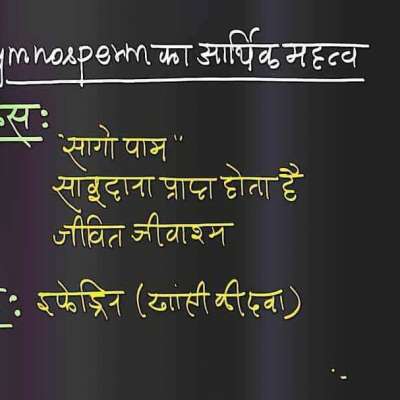 ymnosperm का आर्थिक महत्व
कस:
"सागो पाम"
साबूदाना प्राप्त होता है
जीवित जीवाश्म
: इफेड्रिन (खांसी की दवा)